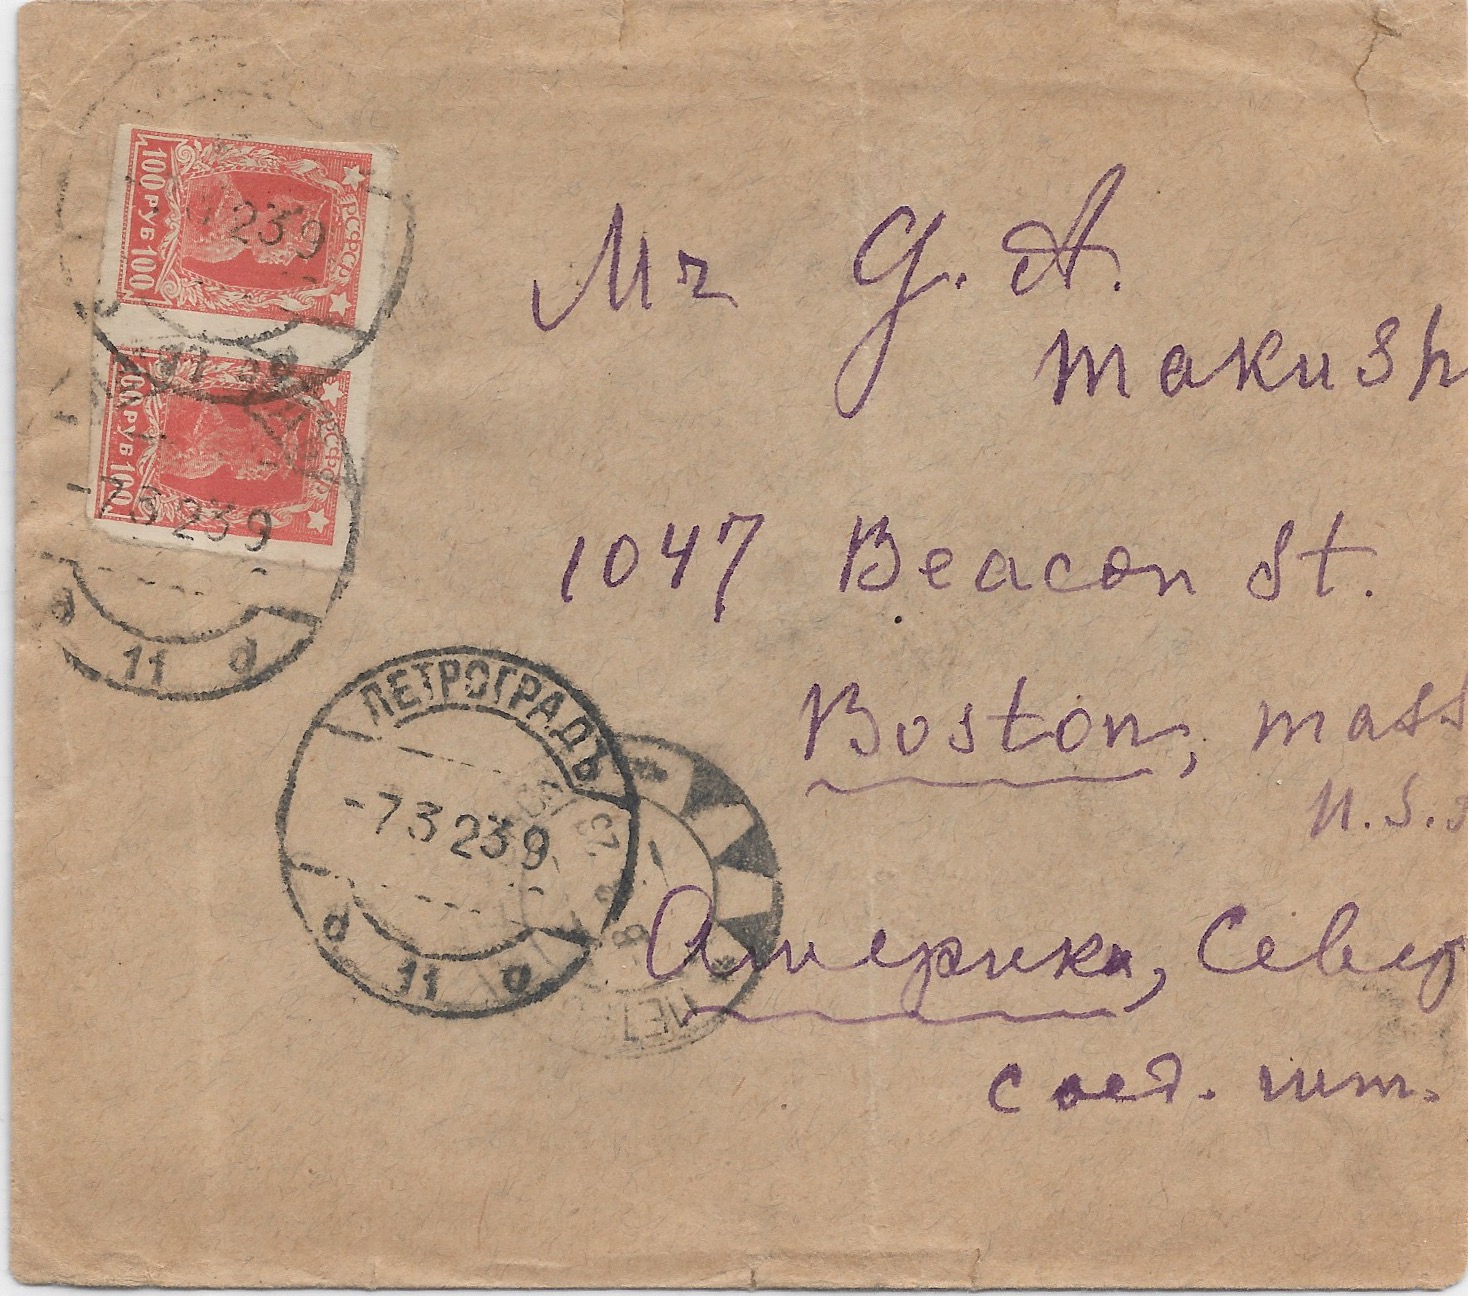 РСФСР
100 РУБ 100
23 9
11
РСФСР
100 РУБ 100
-7 3 23 9
д 11 д
Mr G. A.
Makush
1047 Beacon St.
Boston, Mass
U.S.
ПЕТРОГРАДЪ
-7 3 23 9
д 11 д
Америка, Север
Соед. шт.